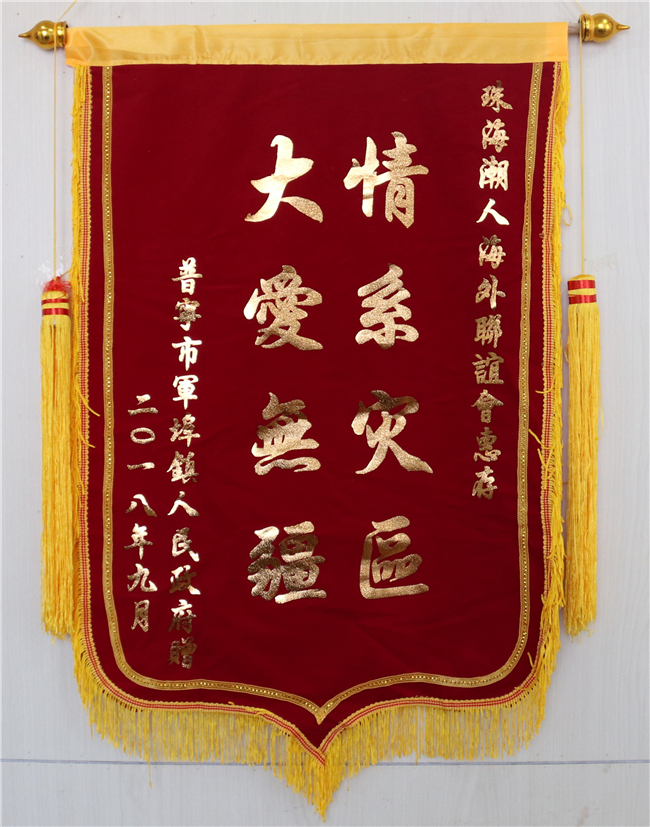 珠海潮人海外聯誼會惠存
情系灾區
大愛無疆
普寧市軍埠鎮人民政府贈
二〇一八年九月